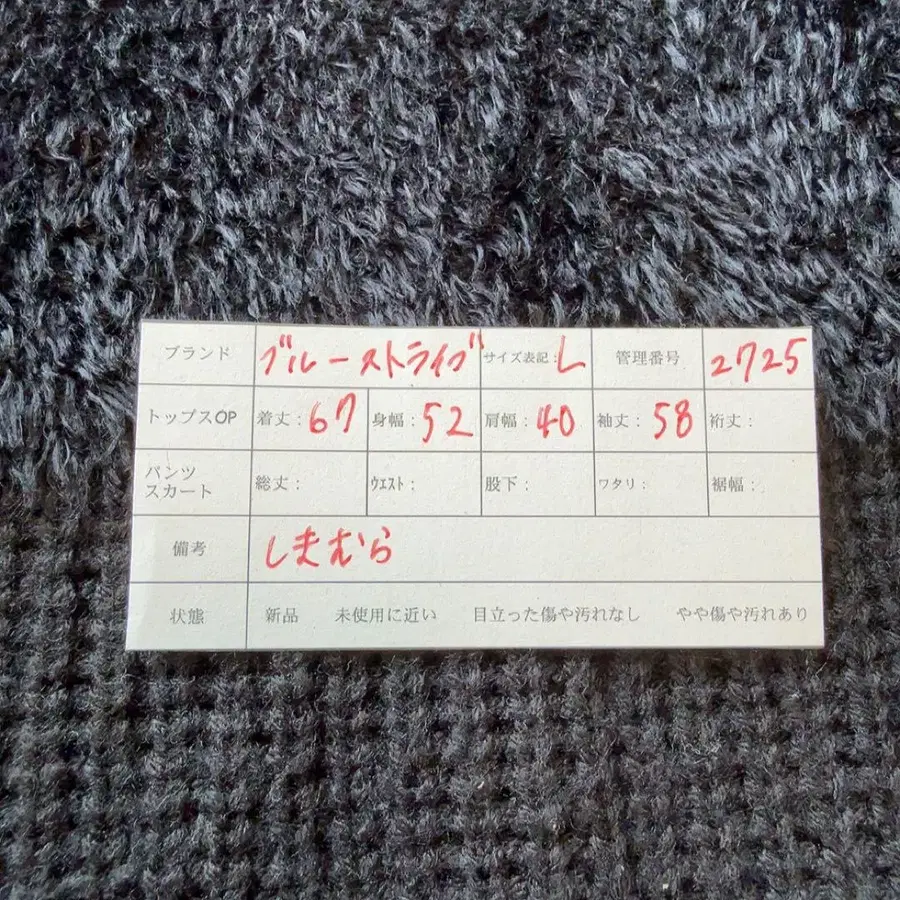 ブランド ブルーストライブ サイズ表記：L 管理番号 2725
トップスOP 着丈：67 身幅：52 肩幅：40 袖丈：58 裄丈：
パンツ
スカート 総丈： ウエスト： 股下： ワタリ： 裾幅：
備考 しまむら
状態 新品 未使用に近い 目立った傷や汚れなし やや傷や汚れあり